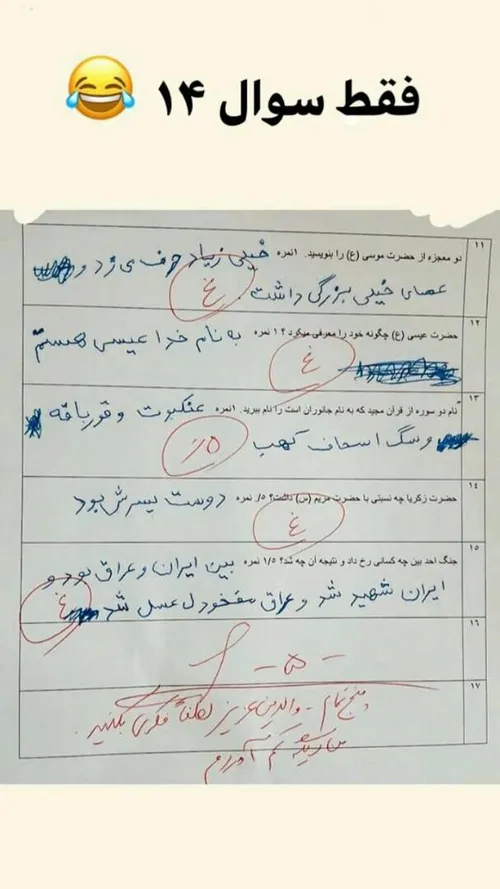 فقط سوال ۱۴ 😂
۱۱
دو معجزه از حضرت موسی (ع) را بنویسید. ۱نمره خیلی زیاد حرف می زد و
عصای خیلی بزرگی داشت.
غ
۱۲
حضرت عیسی (ع) چگونه خود را معرفی میکرد؟ ۱ نمره به نام خدا عیسی هستم
غ
۱۳
نام دو سوره از قرآن مجید که به نام جانوران است را نام ببرید. ۱نمره عنکبوت و قورباقه
و سگ اسحاف کهب
۱۴
حضرت زکریا چه نسبتی با حضرت مریم (س) داشت؟ ۵/. نمره دوست پسرش بود
غ
۱۵
جنگ احد بین چه کسانی رخ داد و نتیجه آن چه شد؟ ۱/۵ نمره بین ایران و عراق بود و
ایران شهید شد و عراق مفخودل عسل شد
غ
۱۶
- ۵ -
۱۷
پنج تمام - والدین عزیز لطفاً فکری بکنید.
من دیگه کم آوردم